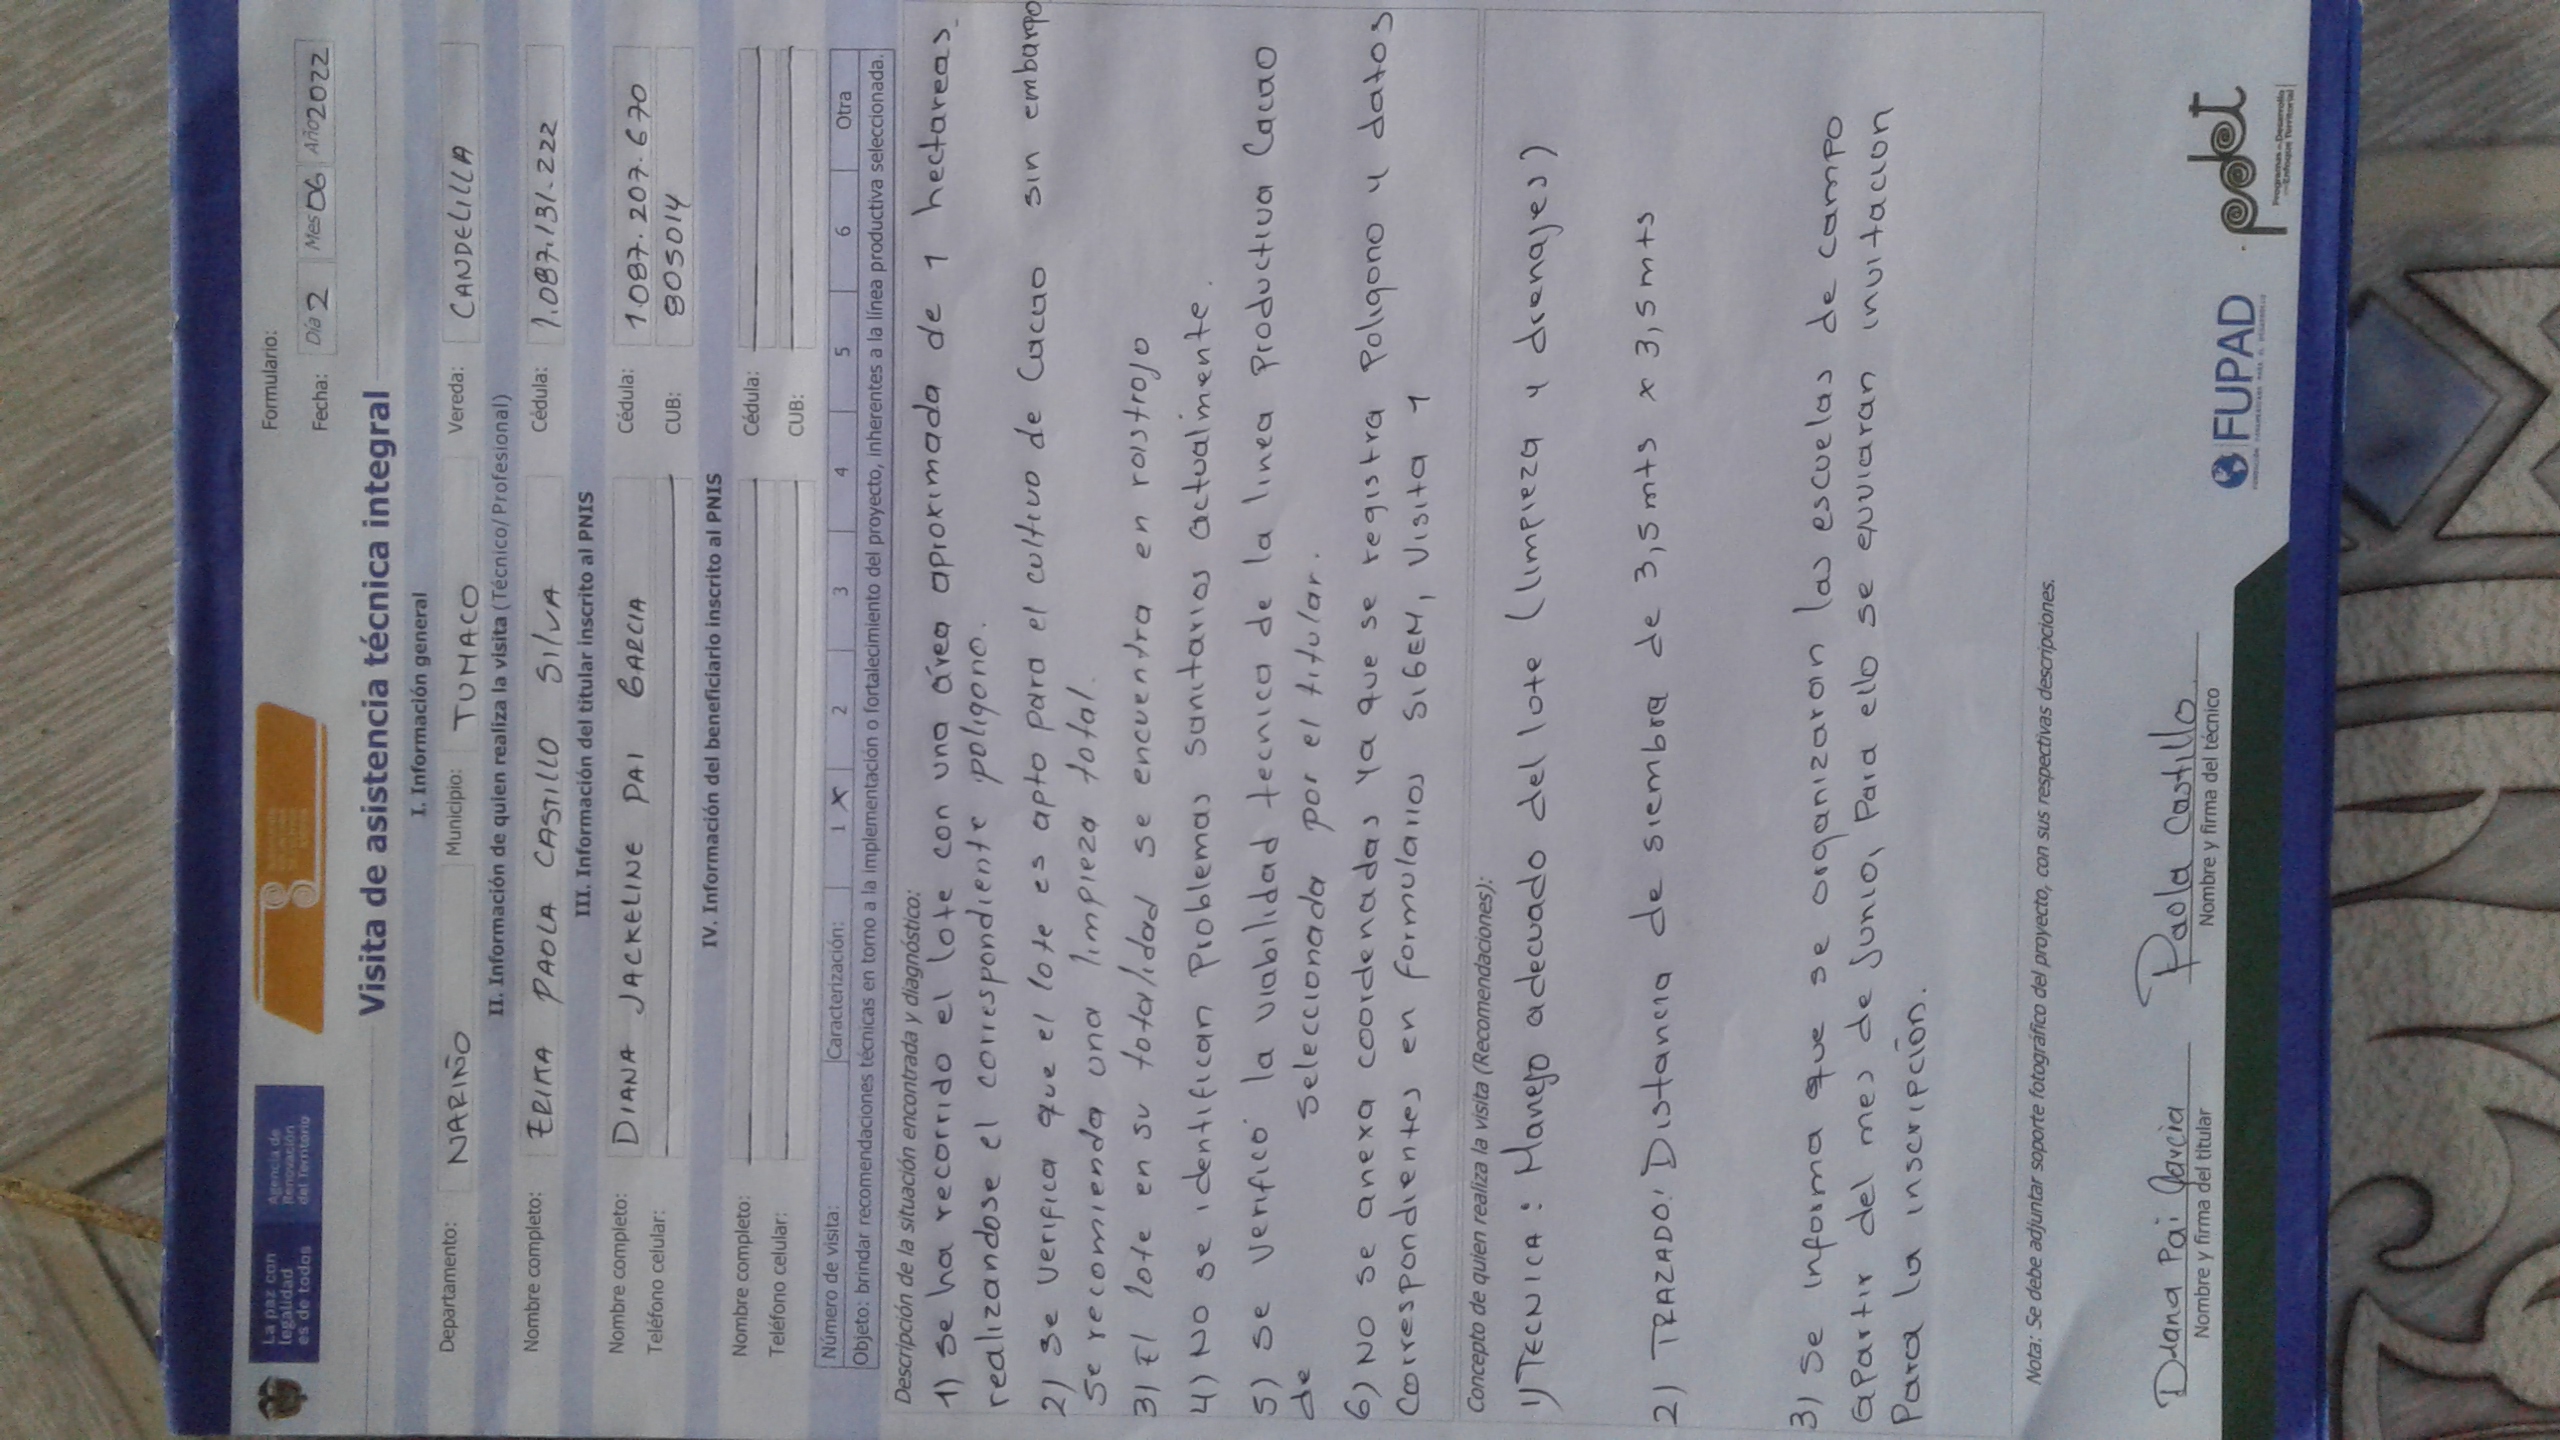 La paz con
legalidad
es de todos
Agencia de
Renovación
del Territorio
Formulario:
Fecha: Día 2 Mes 06 Año 2022
Visita de asistencia técnica integral
I. Información general
Departamento: NARIÑO Municipio: TUMACO Vereda: CANDELILLA
II. Información de quien realiza la visita (Técnico/Profesional)
Nombre completo: ERIKA PAOLA CASTILLO SILVA Cédula: 1.087.131.222
III. Información del titular inscrito al PNIS
Nombre completo: DIANA JACKELINE PAI GARCIA Cédula: 1.087.207.670
Teléfono celular: CUB: 805014
IV. Información del beneficiario inscrito al PNIS
Nombre completo: Cédula:
Teléfono celular: CUB:
Número de visita: Caracterización: 1 X 2 3 4 5 6 Otra
Objeto: brindar recomendaciones técnicas en torno a la implementación o fortalecimiento del proyecto, inherentes a la línea productiva seleccionada.
Descripción de la situación encontrada y diagnóstico:
1) se ha recorrido el lote con una área aproximada de 1 hectareas.
realizandose el correspondiente poligono.
2) se verifica que el lote es apto para el cultivo de Cacao sin embargo
se recomienda una limpieza total.
3) El lote en su totalidad se encuentra en roistrojo
4) No se identifican Problemas sanitarios actualmente.
5) se verificó la viabilidad tecnica de la linea Productiva Cacao
de seleccionada por el titular.
6) NO se anexa coordenadas ya que se registra Poligono y datos
Correspondientes en formularios SIGEM, Visita 1
Concepto de quien realiza la visita (Recomendaciones):
1) TECNICA: Manejo adecuado del lote (limpieza y drenajes)
2) TRAZADO: Distancia de siembra de 3,5mts x 3,5mts
3) Se informa que se organizaron las escuelas de campo
apartir del mes de Junio, Para ello se enviaran invitacion
Para la inscripción.
Nota: Se debe adjuntar soporte fotográfico del proyecto, con sus respectivas descripciones.
Diana Pai Garcia Paola Castillo
Nombre y firma del titular Nombre y firma del técnico
FUPAD
pdet
Programas de Desarrollo
con Enfoque Territorial